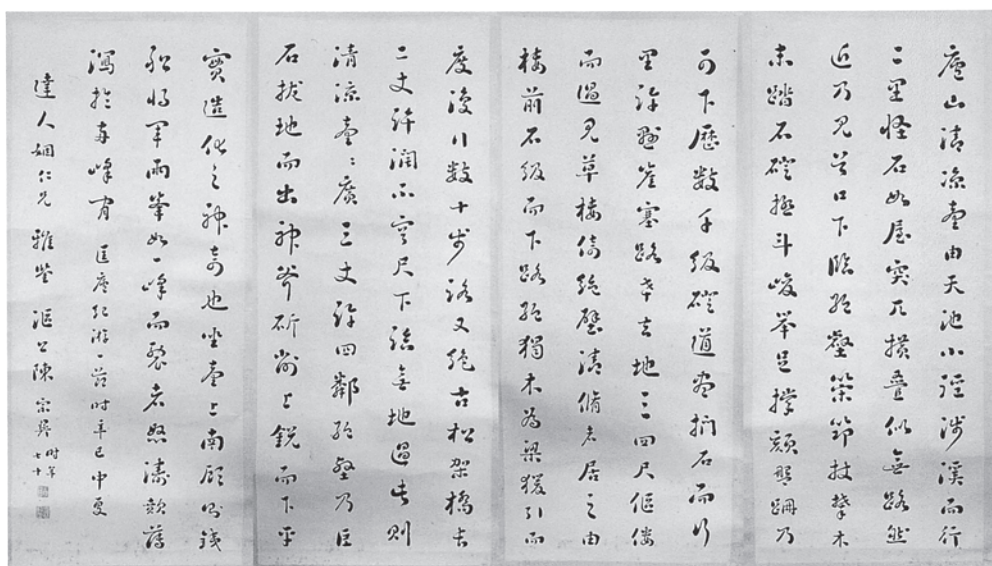 廬山清涼臺由天池小徑涉溪而行
二里怪石如屋突兀横叠似無路然
近乃見谷口下臨絕壑築節杖攀木
未踏石磴極斗峻举足撑顏盤跚乃
可下歷數千级磴道盡捫石而行
里許懸崖塞路去地三四尺傴僂
而過見草棲倚絕壁清脩者居之由
棲前石级而下路絕獨木為梁猨引而
度復行數十步路又絕古松架橋長
二丈許濶不盈尺下臨無地過此則
清涼臺臺廣三丈許四鄰絕壑乃巨
石拔地而出神斧斫削上鋭而下平
實造化之神奇也坐臺上南顧則錢
船將軍兩峯如一峰而裂者怒濤歕薄
瀉於兩峰間 匡廬紀游一節時辛巳中夏
達人姻仁兄雅鉴 漚公陳宗奐 时年七十